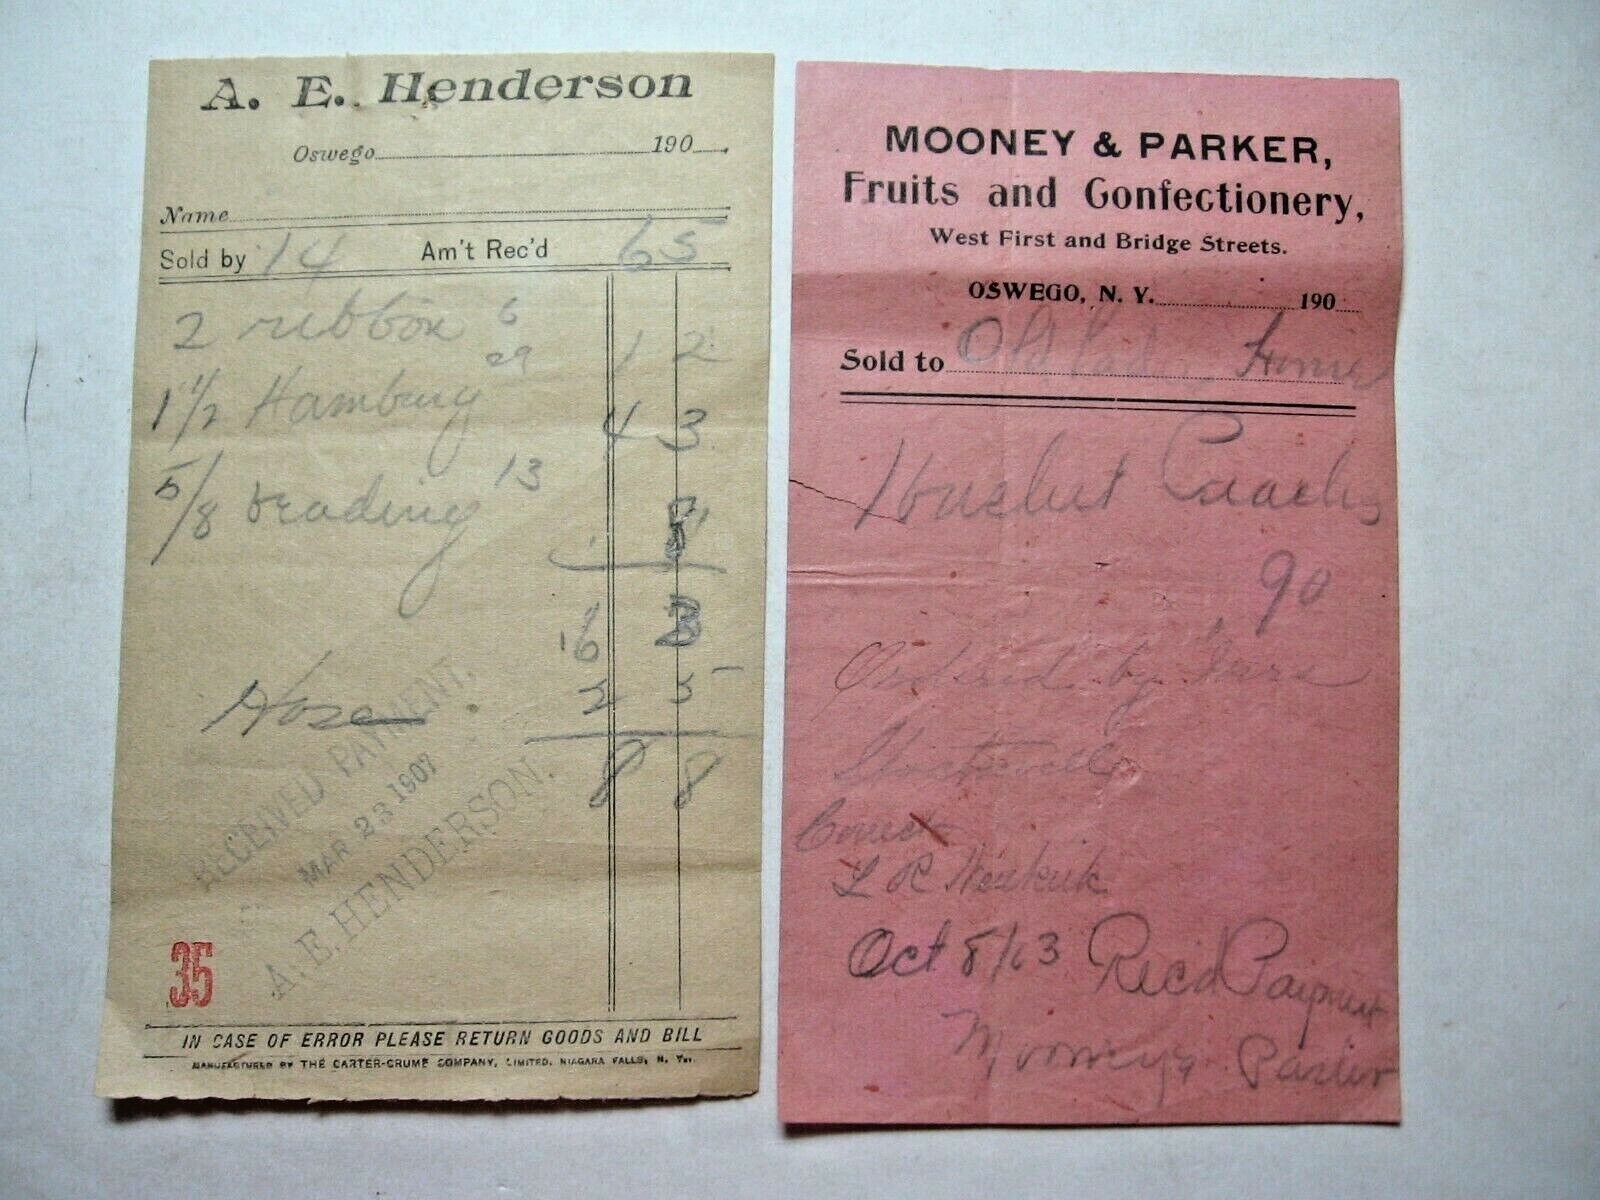 A. E. Henderson
Oswego 190
Name
Sold by 14 Am't Rec'd 65
2 ribbon 6 12
1 1/2 Hamburg 29 43
5/8 beading 13 8
63
Hose 25
88
RECEIVED PAYMENT.
MAR 23 1907
A. E. HENDERSON.
35
IN CASE OF ERROR PLEASE RETURN GOODS AND BILL
MANUFACTURED BY THE CARTER-CRUME COMPANY, LIMITED, NIAGARA FALLS, N. Y.
MOONEY & PARKER,
Fruits and Confectionery,
West First and Bridge Streets.
OSWEGO, N. Y. 190
Sold to Old Home
1
90
Ordered by
Correct
L R
Oct 8/13 Rec'd Payment
Mooney & Parker